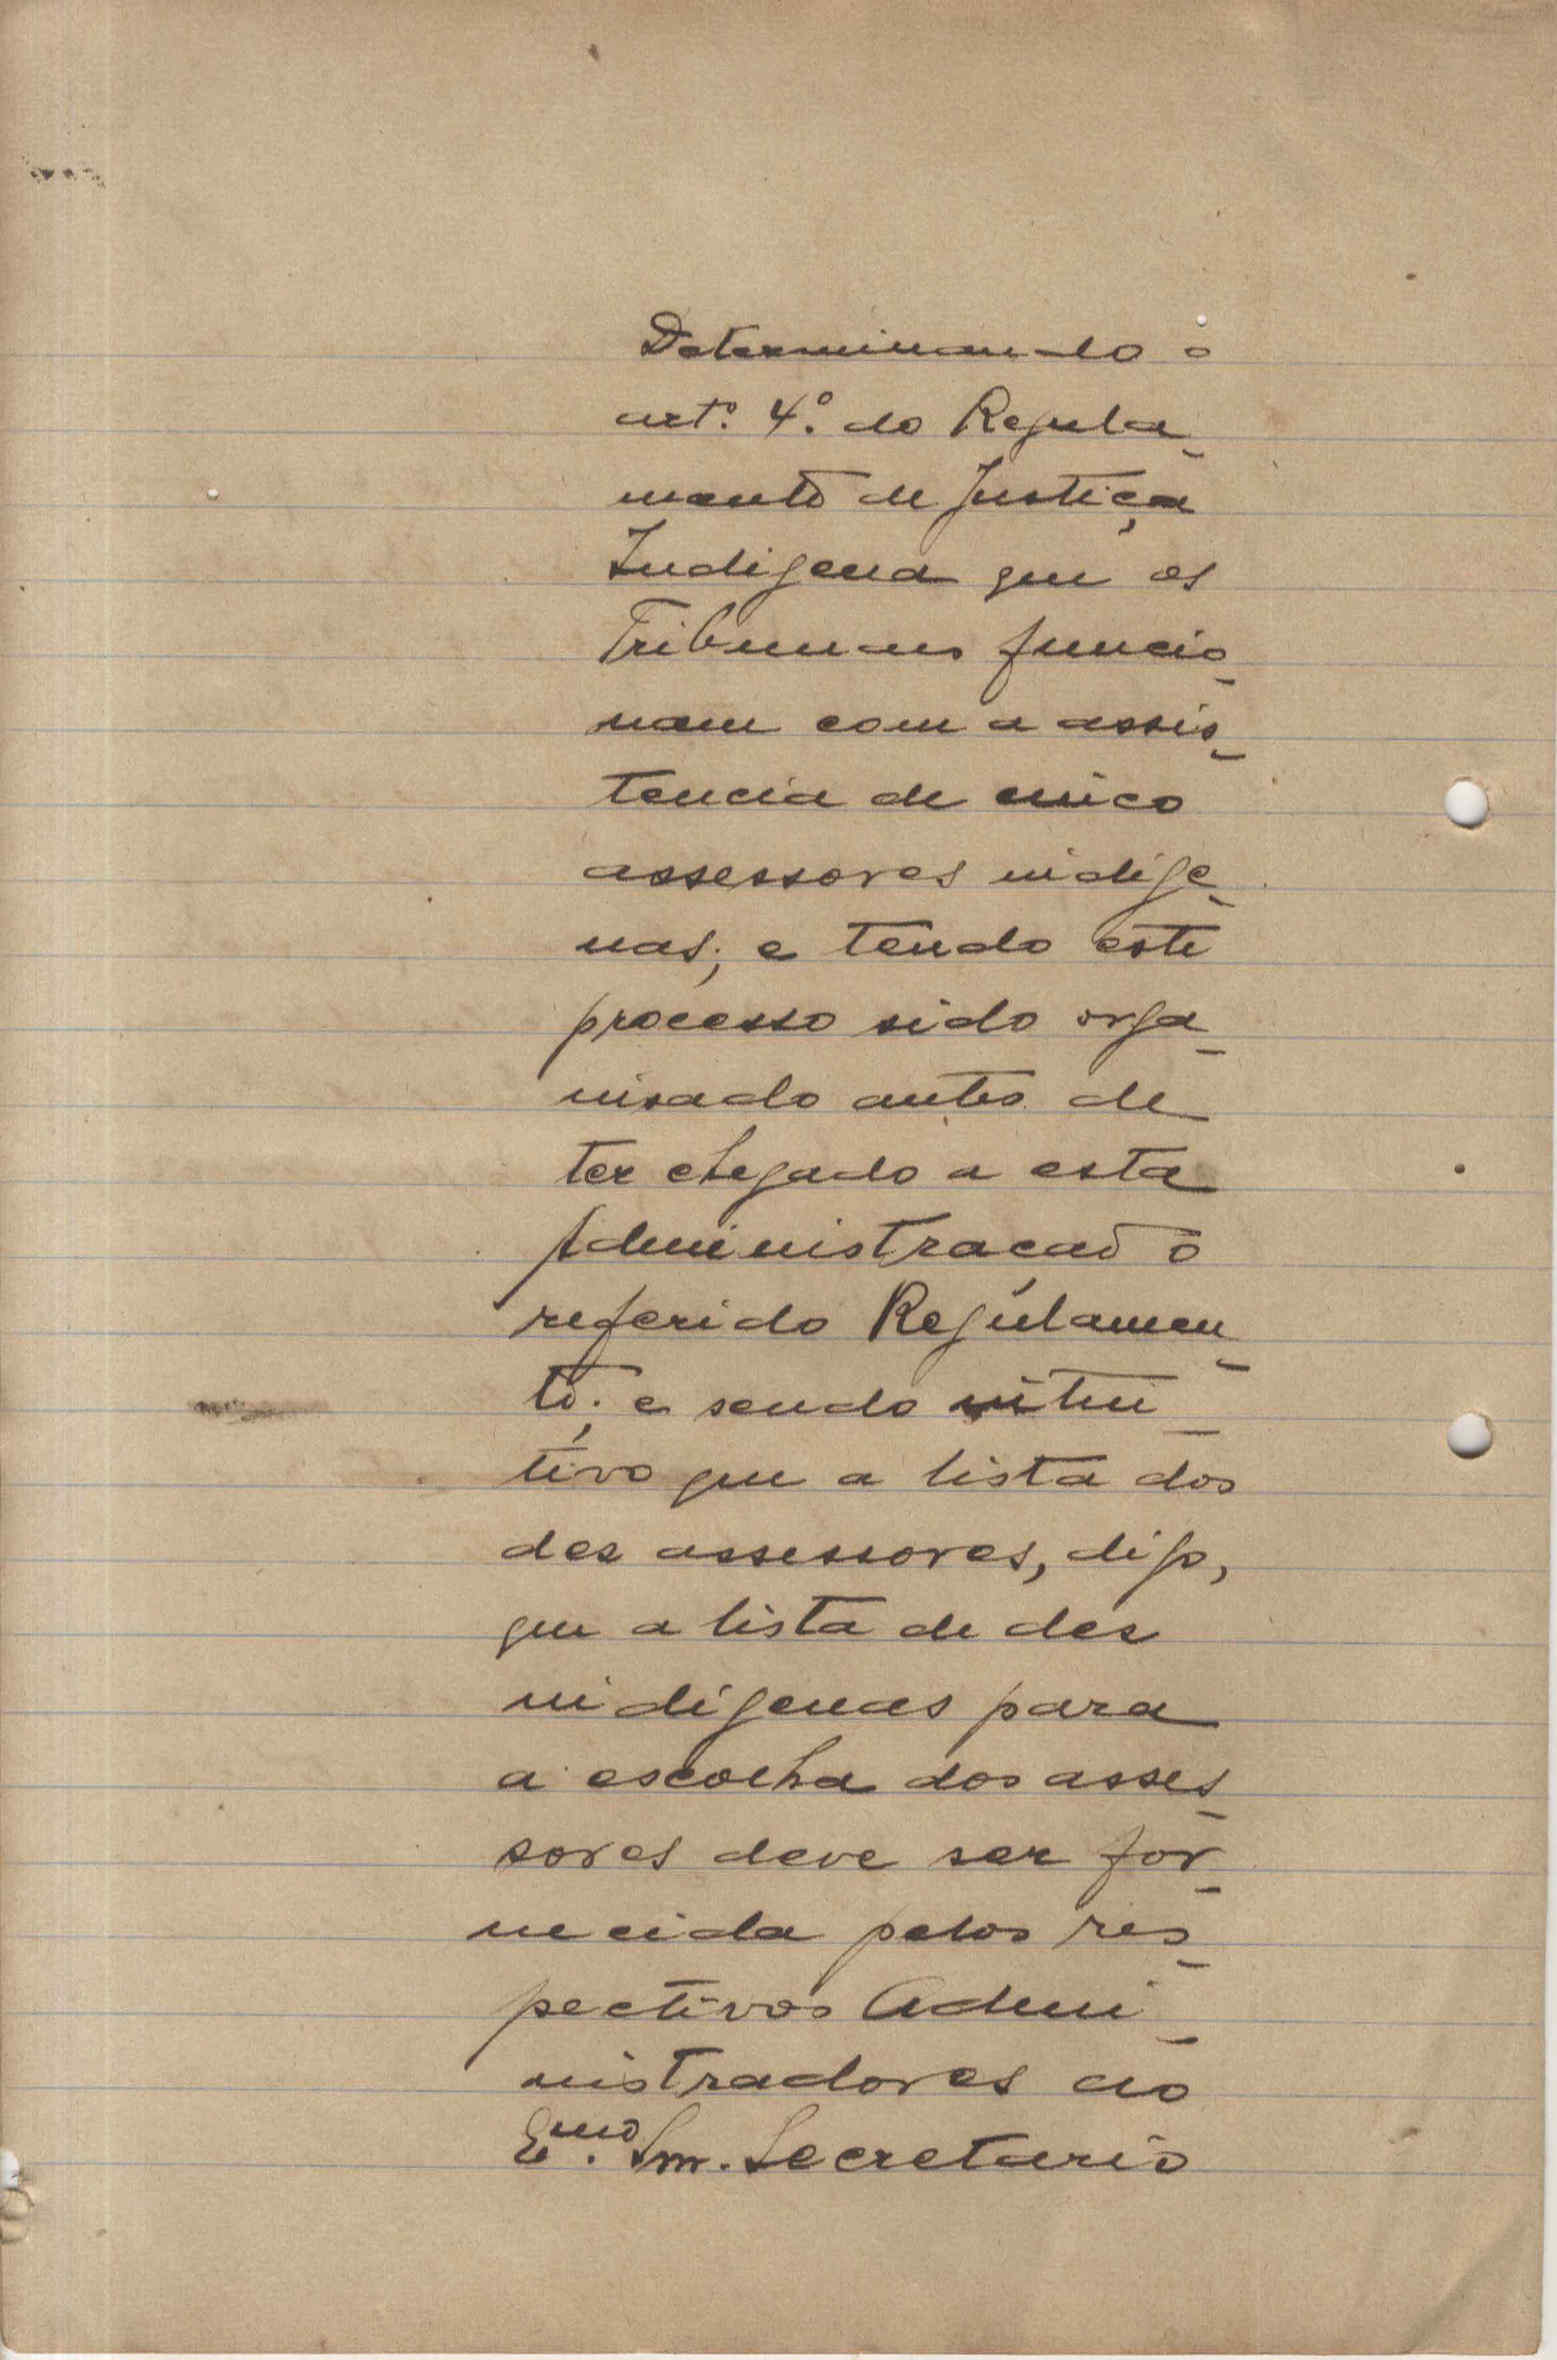 Determinando o
art.º 4.º do Regula-
mento de Justiça
Indigena que os
Tribunaes funcio-
nam com a assis-
tencia de cinco
assessores indige-
nas; e tendo este
processo sido orga-
nisado antes de
ter chegado a esta
Administracão o
referido Regulamen-
to; e sendo intui-
tivo que a lista dos
des assessores, digo,
que a lista de des
indigenas para
a escolha dos asses-
sores deve ser for-
necida pelos res-
pectivos Admi-
nistradores ao
Emo. Snr. Secretario